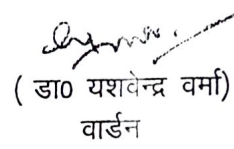 ( डा0 यशवेन्द्र वर्मा)
वार्डन